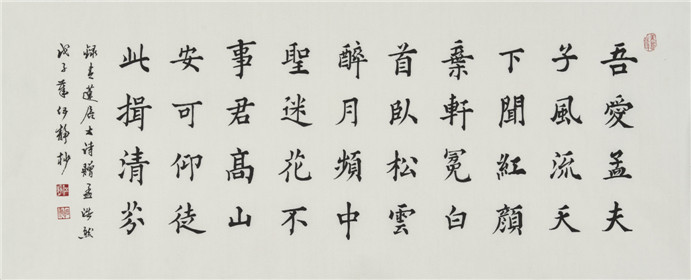 吾愛孟夫
子風流天
下聞紅顏
棄軒冕白
首臥松雲
醉月頻中
聖迷花不
事君髙山
安可仰徒
此揖清芬
錄青蓮居士詩贈孟浩然
戊子 靜抄